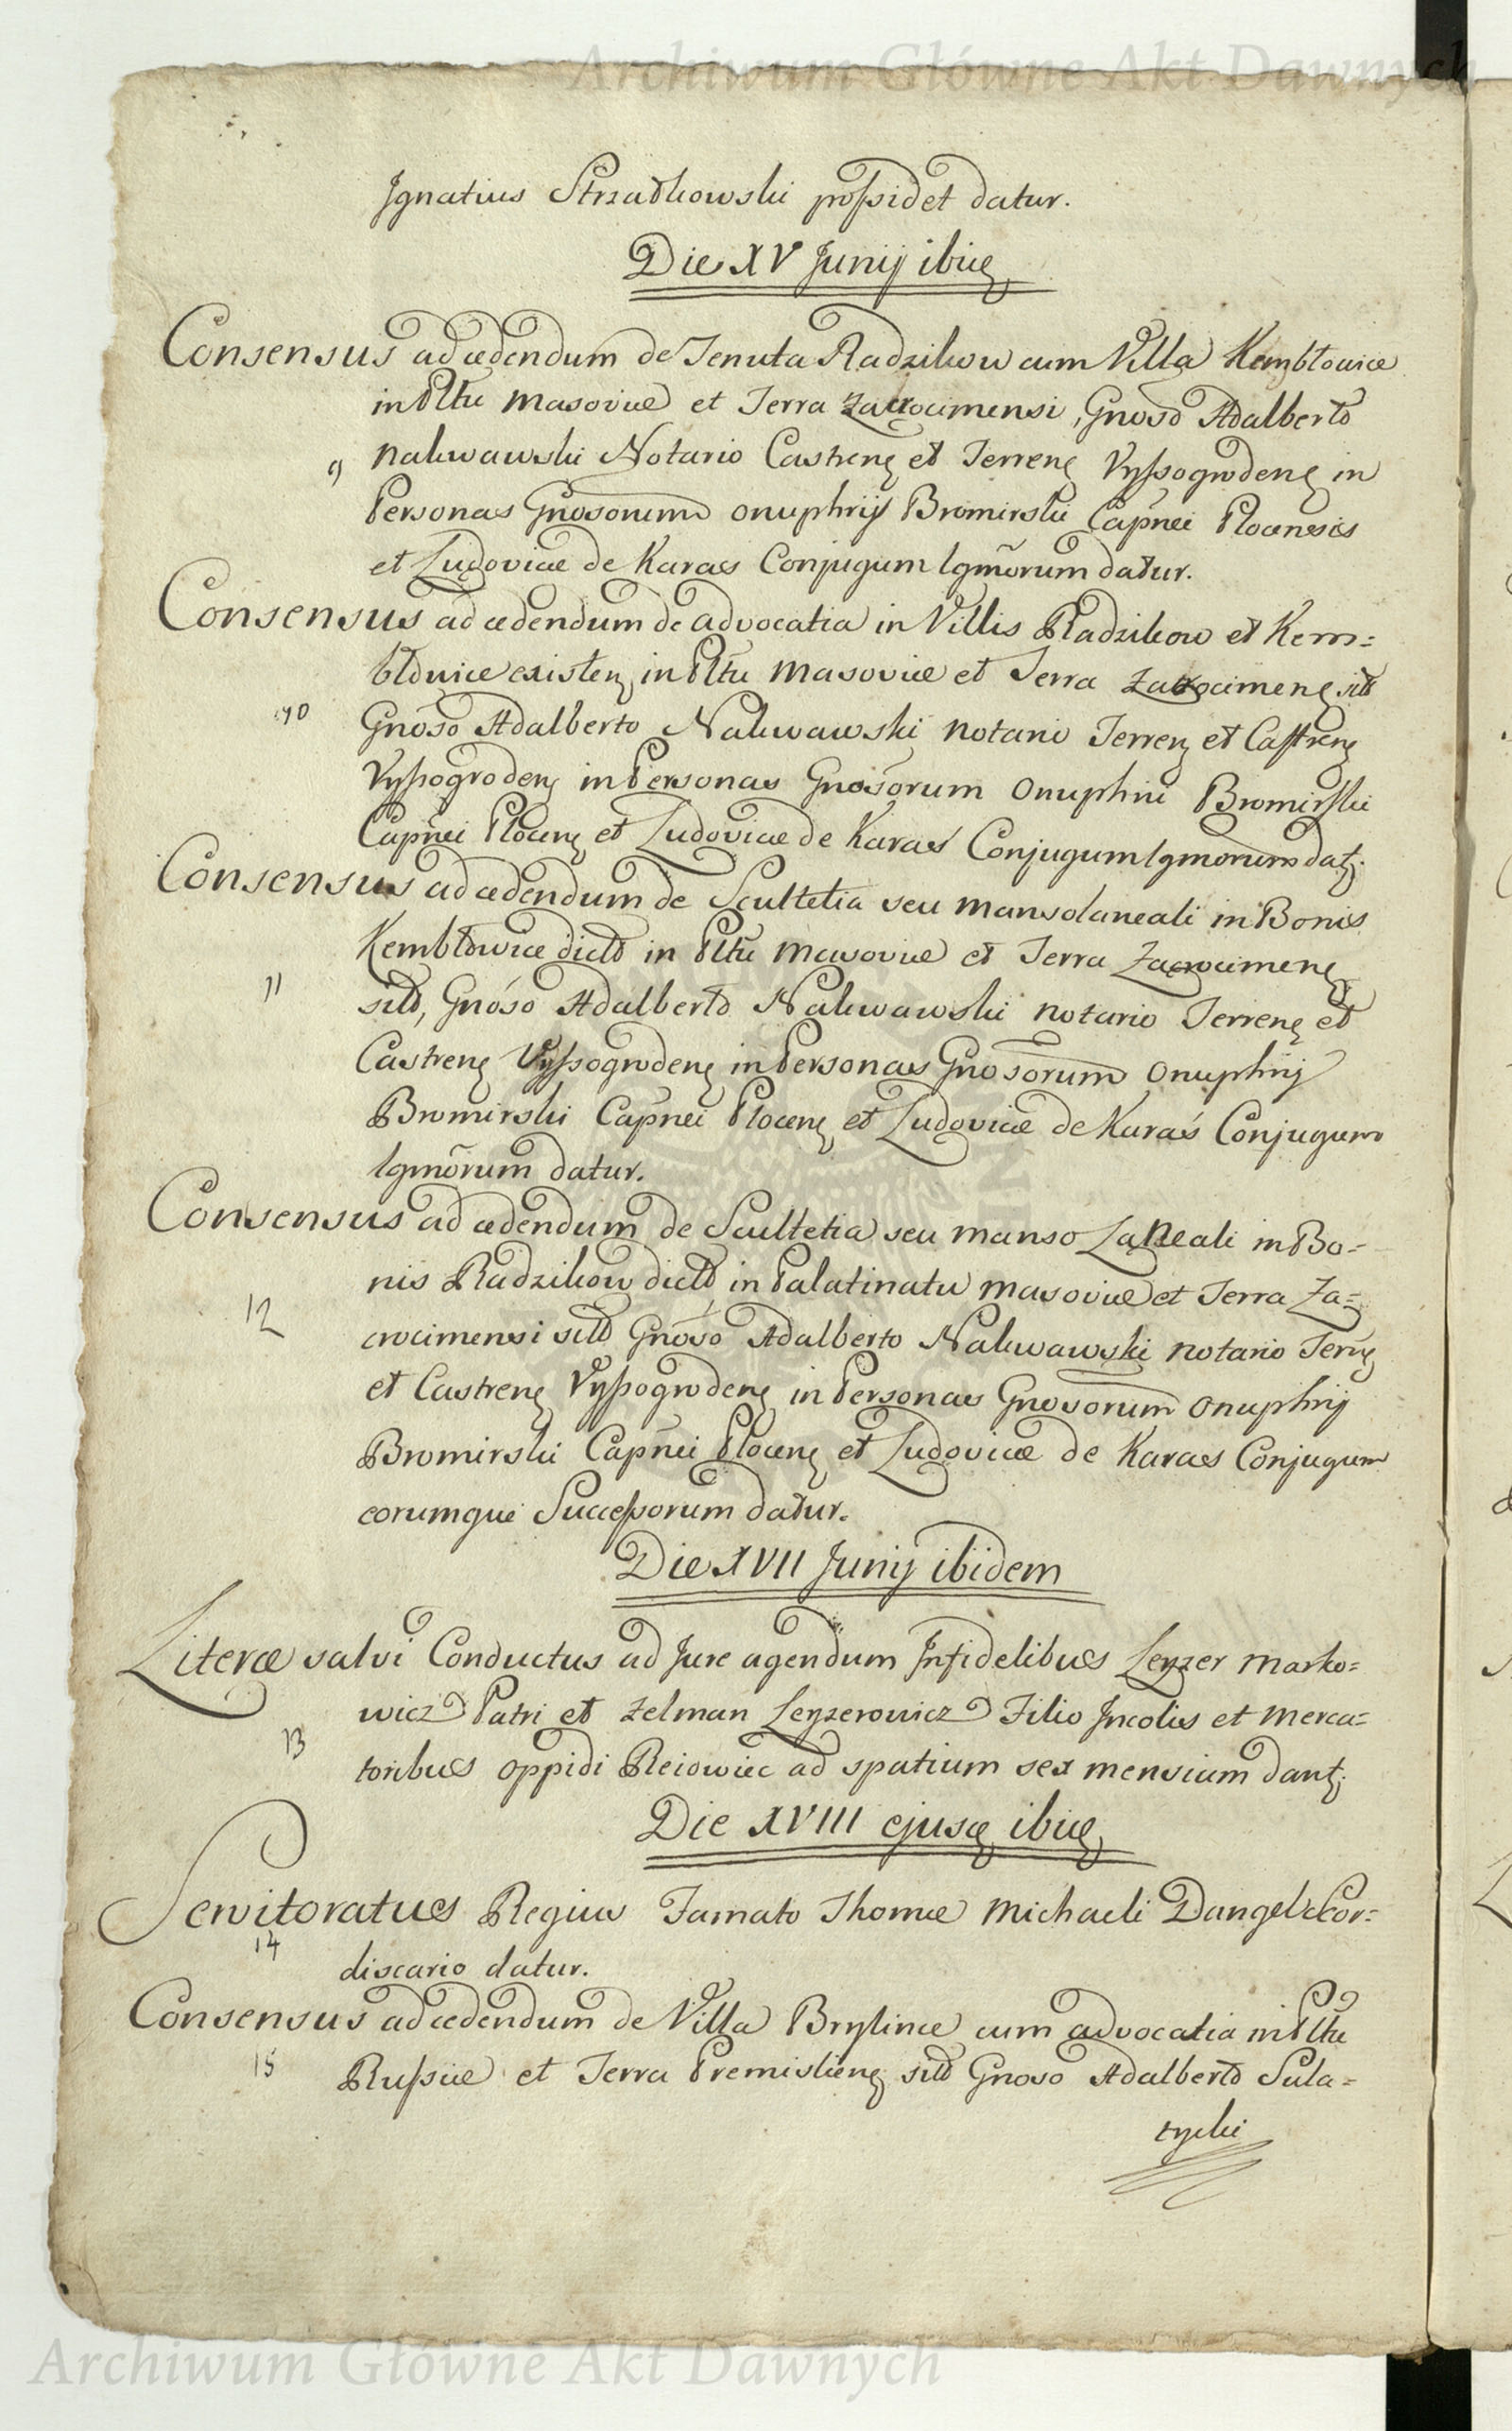 Archiwum Główne Akt Dawnych
Ignatius Strzałkowski possidet datur.
Die XV Junij ibid
Consensus ad cedendum de Tenuta Radzikow cum Villa Kembłowice
in Pltu Masoviæ et Terra Zacrocimensi, Gnoso Adalberto
9 Nakwawski Notario Castren et Terren Vyssogroden in
Personas Gnosorum Onuphrij Bromirski Capnei Plocensis
et Ludovicæ de Karas Conjugum lgmõrum datur.
Consensus ad cedendum de advocatia in Villis Radzikow et Kem=
błowice existen in Pltu Masoviæ et Terra Zakrocimen sitt
10 Gnoso Adalberto Nakwawski notario Terren et Castren
Vyssogroden in Personas Gnosorum Onuphrii Bromirski
Capnei Plocen et Ludovicæ de Karas Conjugum lgmorum dat.
Consensus ad cedendum de Scultetia seu manso laneali in Bonis
Kembłowice dicto in Pltu Masoviæ et Terra Zacrocimen
11 sito, Gnoso Adalberto Nakwawski notario Terren et
Castren Vyssogroden in Personas Gnosorum Onuphrij
Bromirski Capnei Plocen et Ludovicæ de Karaś Conjugum
lgmõrum datur.
Consensus ad cedendum de Scultetia seu manso Laneali in Bo=
nis Radzikow dicto in Palatinatu Masoviæ et Terra Za=
12 crocimensi sito Gnoso Adalberto Nakwawski notario Terren
et Castren Vyssogroden in Personas Gnosorum Onuphrij
Bromirski Capnei Plocen et Ludovicæ de Karas Conjugum
eorumque Successorum datur.
Die XVII Junij ibidem
Literæ salvi Conductus ad Jure agendum Infidelibus Leyzer Marko=
wicz Patri et Zelman Leyzerowicz Filio Incolis et Merca=
13 toribus oppidi Reiowiec ad spatium sex mensium dant.
Die XVIII ejusd ibid
Servitoratus Regius Famato Thomæ Michaeli Dangel Cor=
14 discario datur.
Consensus ad cedendum de Villa Brylince cum advocatia in Pltu
15 Russiæ et Terra Premislien sito Gnoso Adalberto Sula=
tycki
Archiwum Główne Akt Dawnych